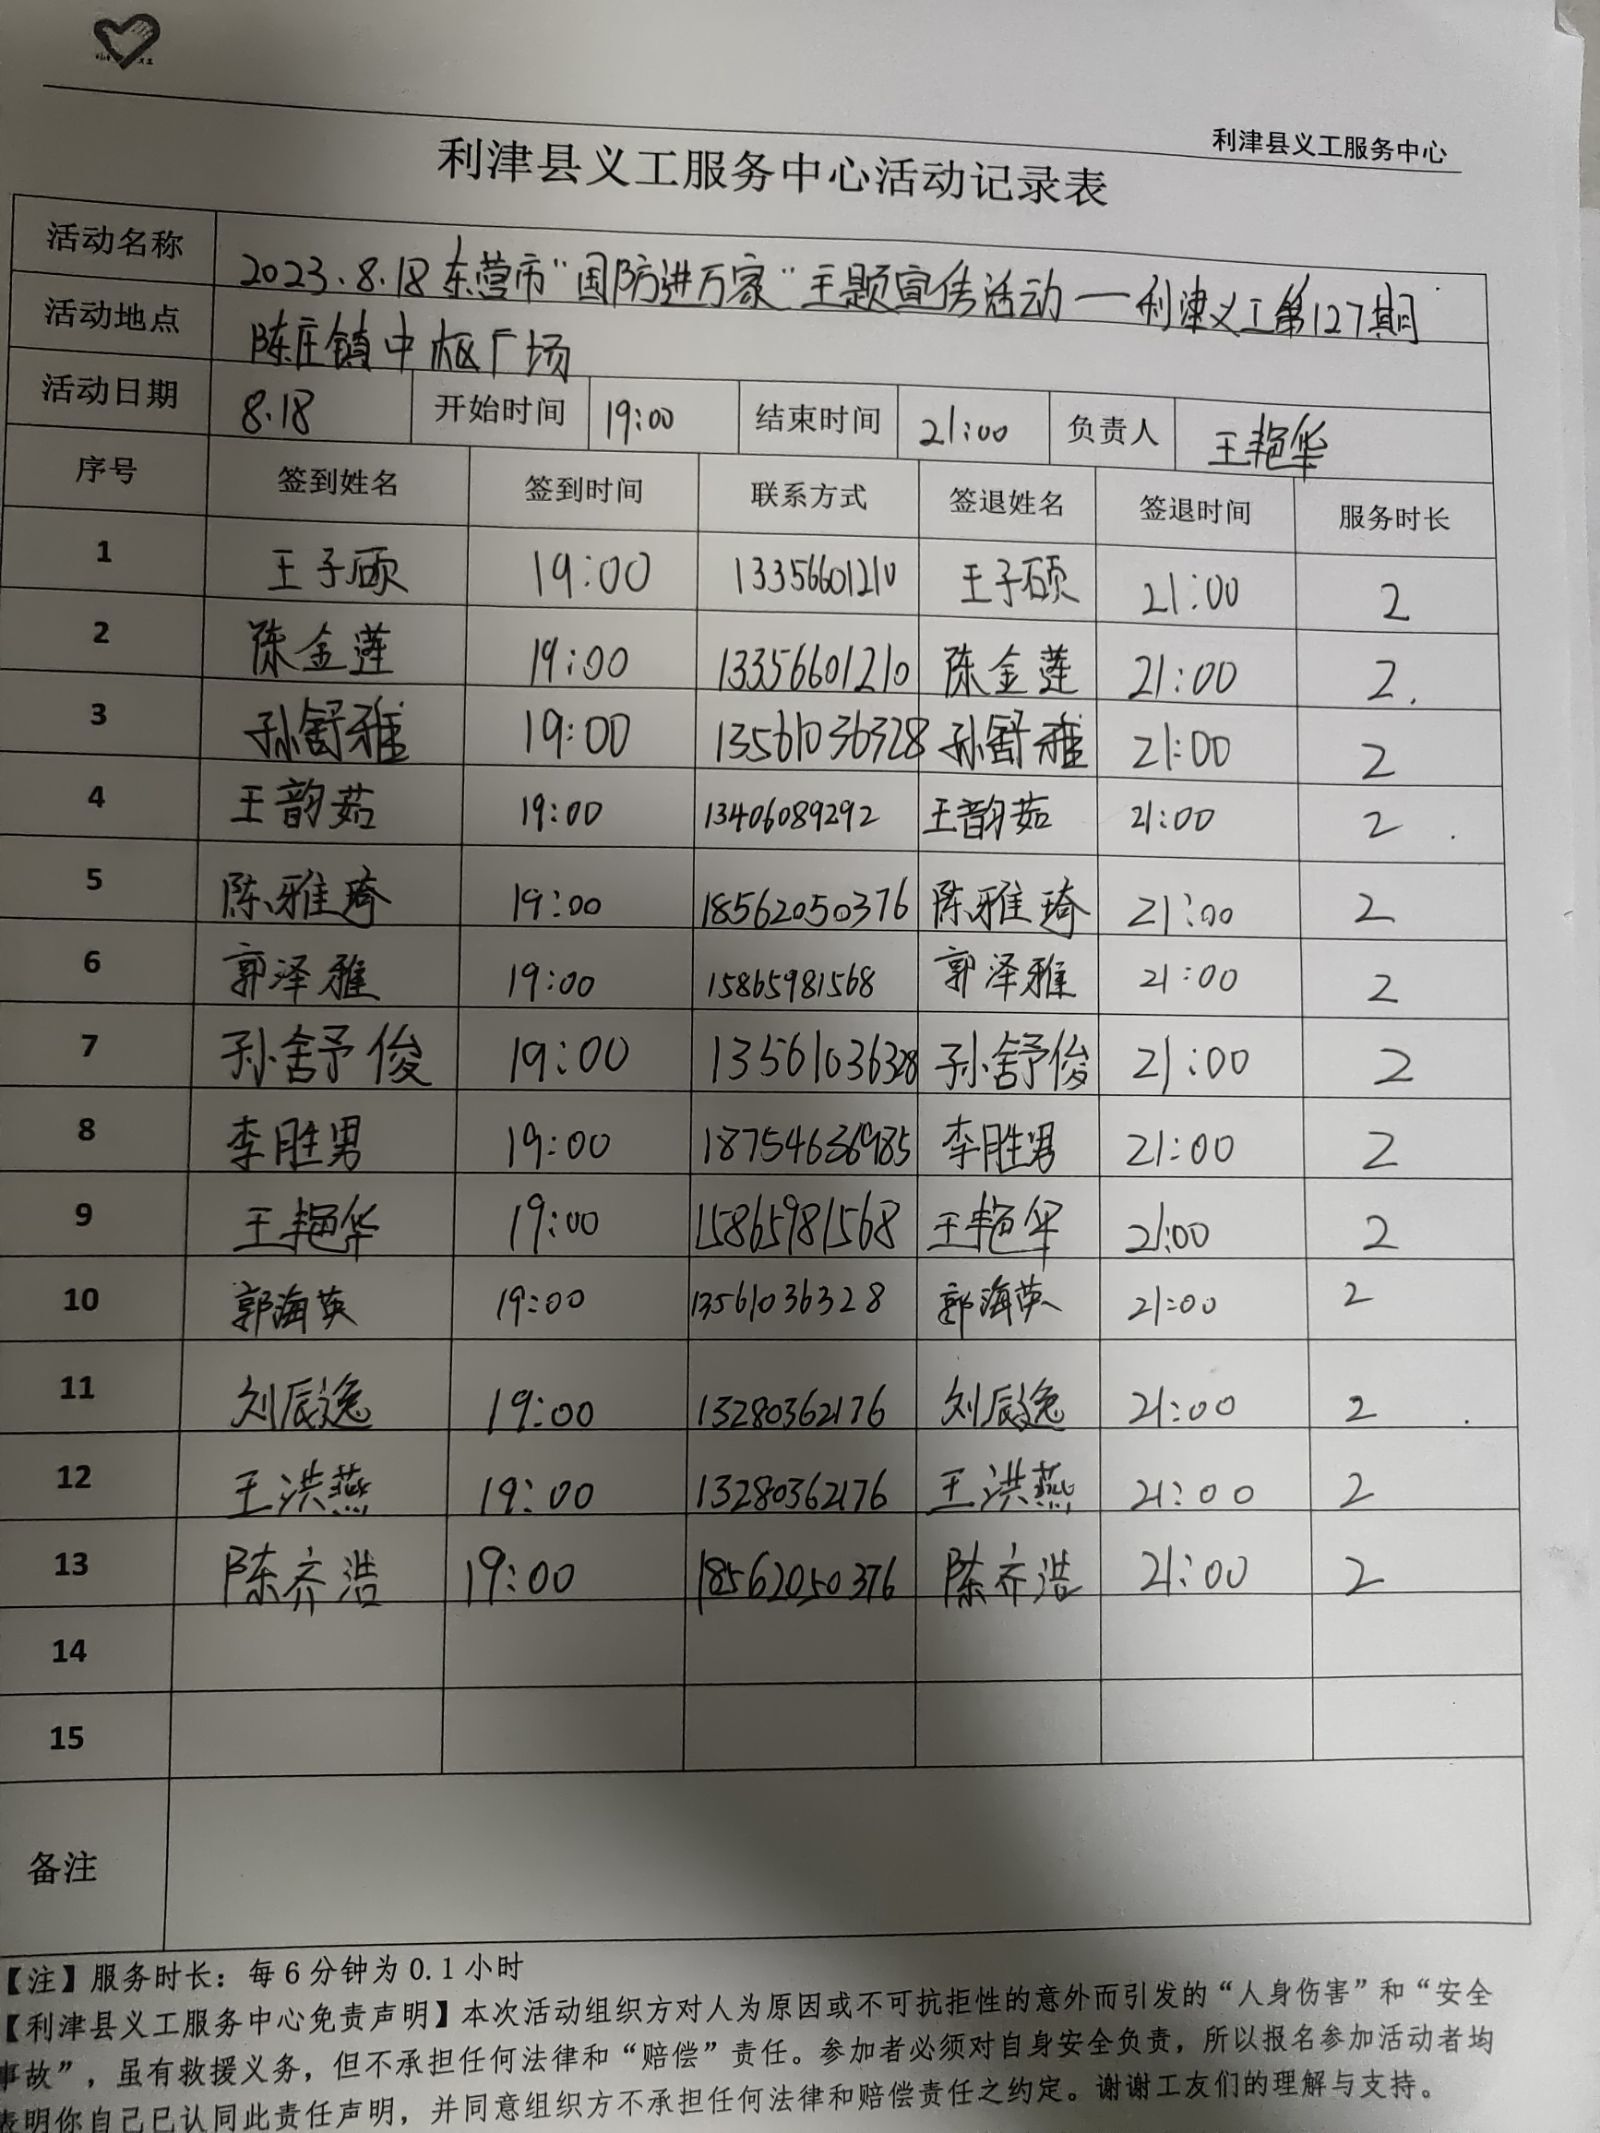 利津县义工服务中心
利津县义工服务中心活动记录表
活动名称 2023.8.18东营市“国防进万家”主题宣传活动—利津义工第127期
活动地点 陈庄镇中枢广场
活动日期 8.18 开始时间 19:00 结束时间 21:00 负责人 王艳华
序号 签到姓名 签到时间 联系方式 签退姓名 签退时间 服务时长
1 王子硕 19:00 13356601210 王子硕 21:00 2
2 陈金莲 19:00 13356601210 陈金莲 21:00 2
3 孙舒雅 19:00 13561036328 孙舒雅 21:00 2
4 王韵茹 19:00 13406089292 王韵茹 21:00 2
5 陈雅琦 19:00 18562050376 陈雅琦 21:00 2
6 郭泽雅 19:00 15865981568 郭泽雅 21:00 2
7 孙舒俊 19:00 13561036328 孙舒俊 21:00 2
8 李胜男 19:00 18754636985 李胜男 21:00 2
9 王艳华 19:00 15865981568 王艳华 21:00 2
10 郭海英 19:00 13561036328 郭海英 21:00 2
11 刘辰逸 19:00 13280362176 刘辰逸 21:00 2
12 王洪燕 19:00 13280362176 王洪燕 21:00 2
13 陈乔浩 19:00 18562050376 陈乔浩 21:00 2
14
15
备注
【注】服务时长：每6分钟为0.1小时
【利津县义工服务中心免责声明】本次活动组织方对人为原因或不可抗拒性的意外而引发的“人身伤害”和“安全
事故”，虽有救援义务，但不承担任何法律和“赔偿”责任。参加者必须对自身安全负责，所以报名参加活动者均
表明你自己已认同此责任声明，并同意组织方不承担任何法律和赔偿责任之约定。谢谢工友们的理解与支持。